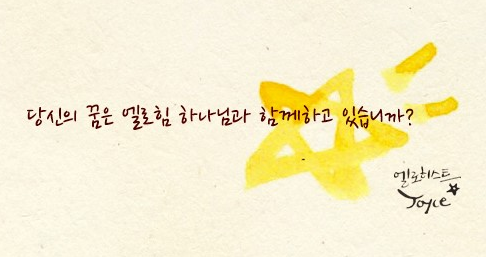 당신의 꿈은 엘로힘 하나님과 함께하고 있습니까?
엘로히스트
Joyce